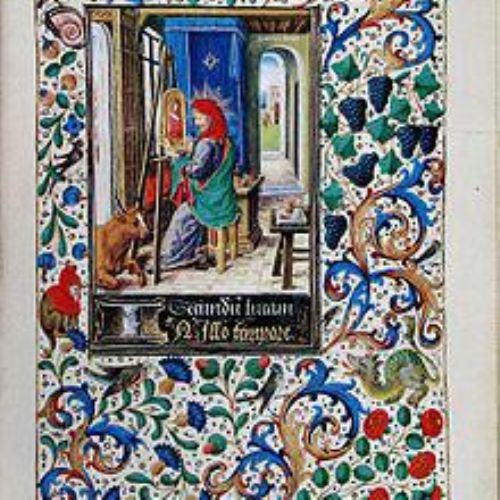 Secundū lucam
IN illo tempore.